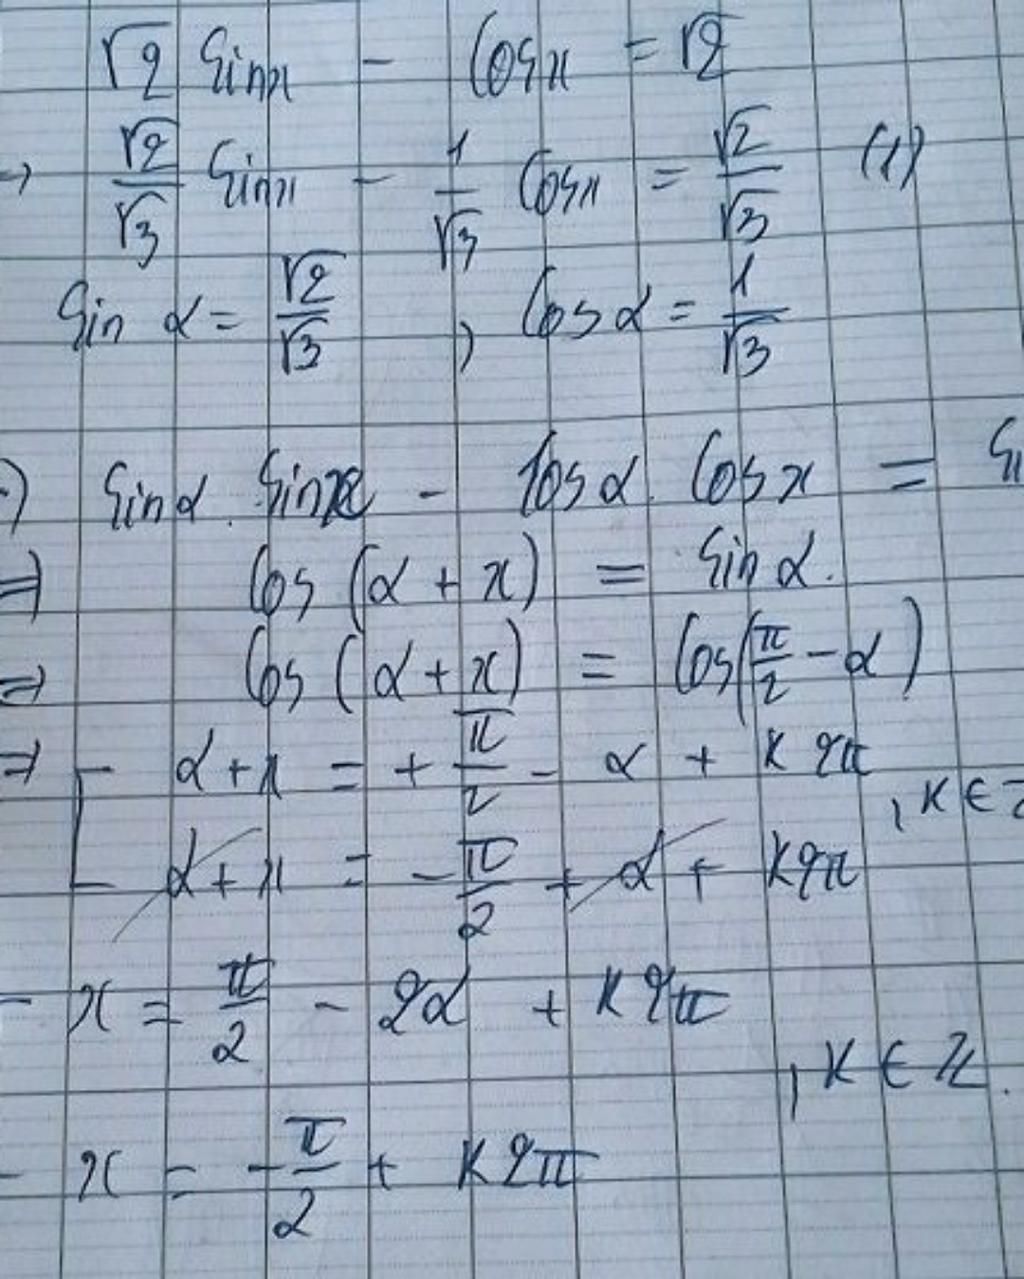 √2 Sinx - Cosx = √2
→ √2/√3 Sinx - 1/√3 Cosx = √2/√3 (1)
Sin α = √2/√3 , Cosα = 1/√3
) Sinα. Sinx - Cosα. Cosx =
⇒ Cos (α + x) = Sinα.
⇒ Cos (α + x) = Cos(π/2 - α)
⇒ [ α + x = + π/2 - α + k2π
, k ∈ Z
α + x = - π/2 + α + k2π
- x = π/2 - 2α + k2π
, k ∈ Z.
- x = - π/2 + k2π